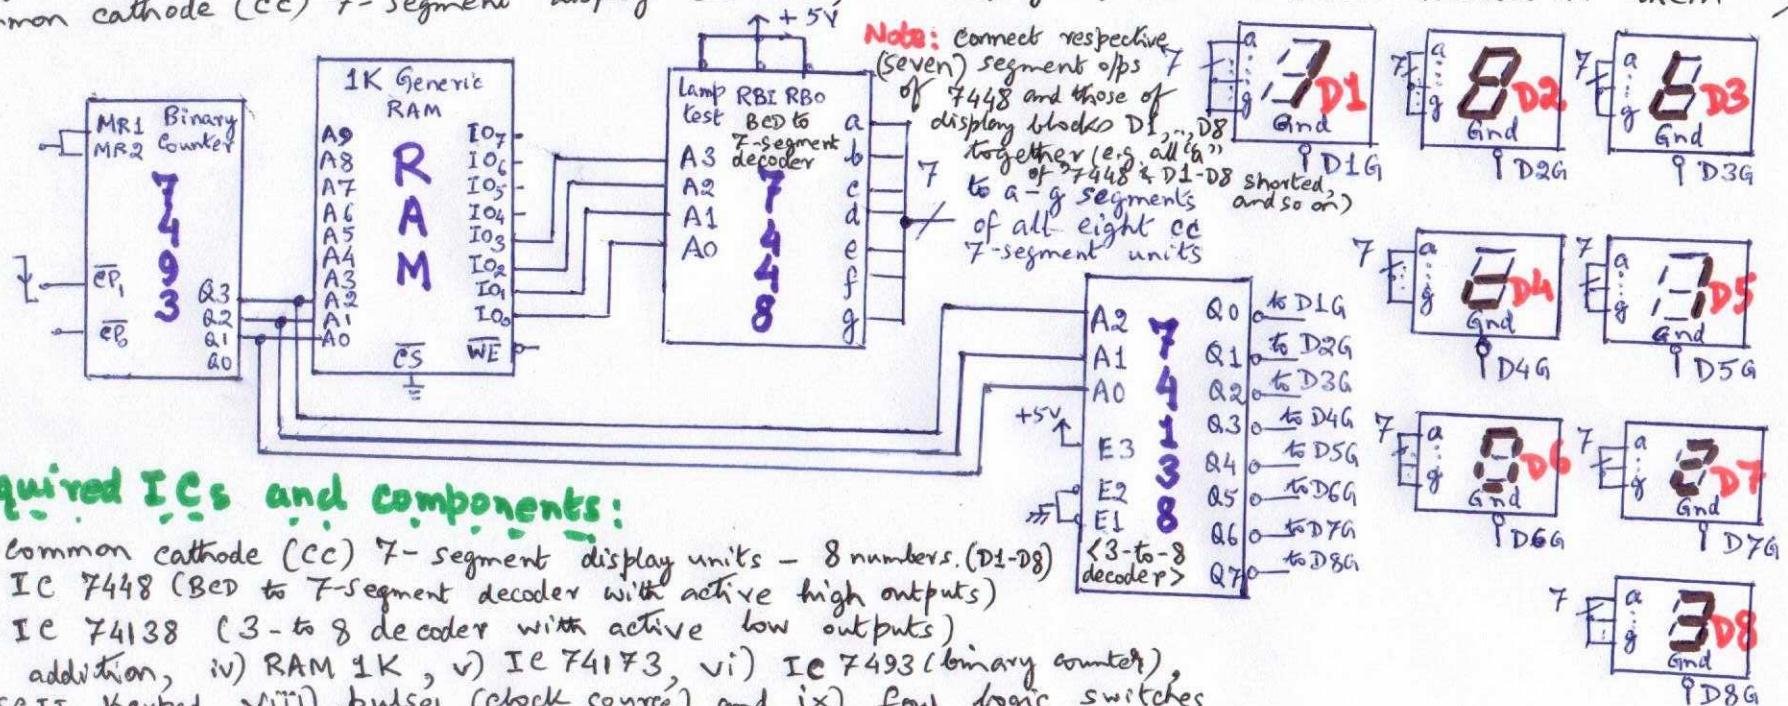 mmon cathode (CC) 7-segment display
them
+5V
Note: Connect respective
(seven) segment o/ps
of 7448 and those of
display blocks D1,..,D8
together (e.g. all "a"
of 7448 & D1-D8 shorted,
and so on)
7
to a-g segments
of all eight cc
7-segment units
MR1
MR2
Binary
Counter
7493
CP1
CP0
Q3
Q2
Q1
Q0
1K Generic
RAM
RAM
A9
A8
A7
A6
A5
A4
A3
A2
A1
A0
IO7
IO6
IO5
IO4
IO3
IO2
IO1
IO0
CS
WE
Lamp
test
RBI RBO
BCD to
7-segment
decoder
7448
A3
A2
A1
A0
a
b
c
d
e
f
g
A2
A1
A0
+5V
E3
E2
E1
74138
<3-to-8
decoder>
Q0 to D1G
Q1 to D2G
Q2 to D3G
Q3 to D4G
Q4 to D5G
Q5 to D6G
Q6 to D7G
Q7 to D8G
7 a g D1
Gnd
D1G
7 a g 8 D2
Gnd
D2G
7 a g D3
Gnd
D3G
7 a g D4
Gnd
D4G
7 a g D5
Gnd
D5G
7 a g D6
Gnd
D6G
7 a g 2 D7
Gnd
D7G
7 a g 3 D8
Gnd
D8G
quired ICs and components:
Common cathode (CC) 7-segment display units - 8 numbers. (D1-D8)
IC 7448 (BCD to 7-segment decoder with active high outputs)
IC 74138 (3-to 8 decoder with active low outputs)
addition, iv) RAM 1K, v) IC 74173, vi) IC 7493 (binary counter),
keypad, viii) pulser (clock source) and ix) four logic switches